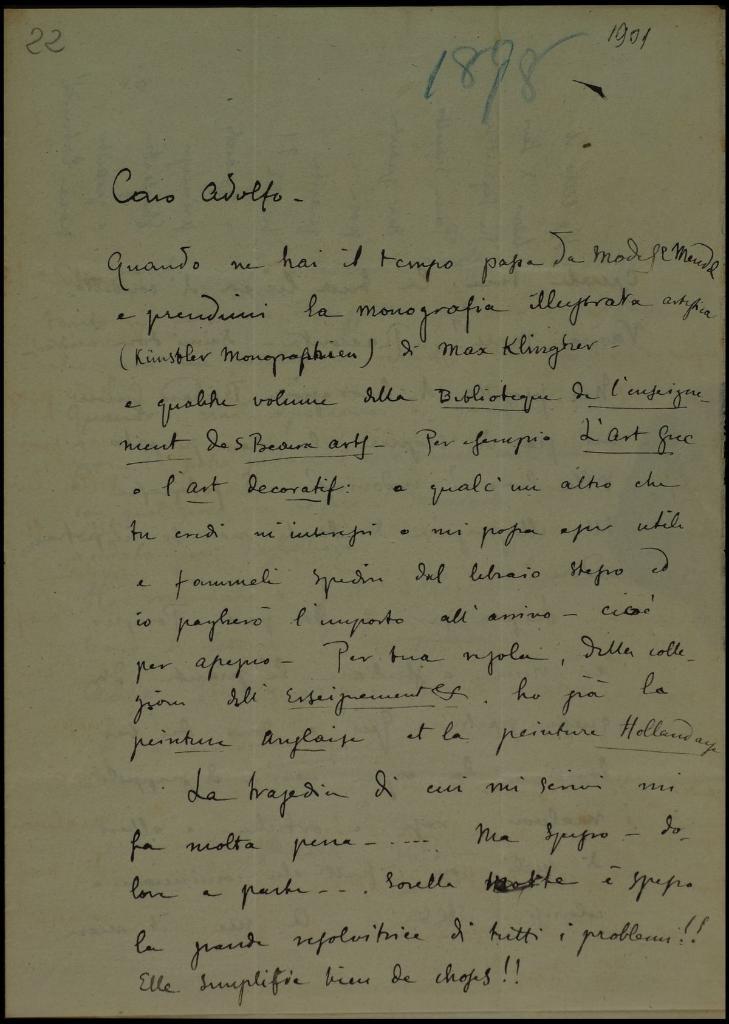 22
1898
1901
Caro Adolfo -
Quando ne hai il tempo passa da
e prendimi la monografia illustrata artistica
(Künstler Monographien) di Max Klingher -
e qualche volume della Biblioteque de l'enseigne-
ment des Beaux arts - Per esempio L'Art Grec
o l'art decoratif: o qualc'un altro che
tu credi m'interessi o mi possa esser utile
e fammeli spedire dal libraio stesso ed
io pagherò l'importo all'arrivo - cioè
per assegno - Per tua regola, della colle-
zione dell' Enseignement &. ho già la
peinture Anglaise et la peinture Hollandaise
La tragedia di cui mi scrivi mi
fa molta pena - .... Ma spesso - do-
lore a parte - - . Sorella Morte è spesso
la grande risolvitrice di tutti i problemi!!
Elle simplifie bien de choses!!